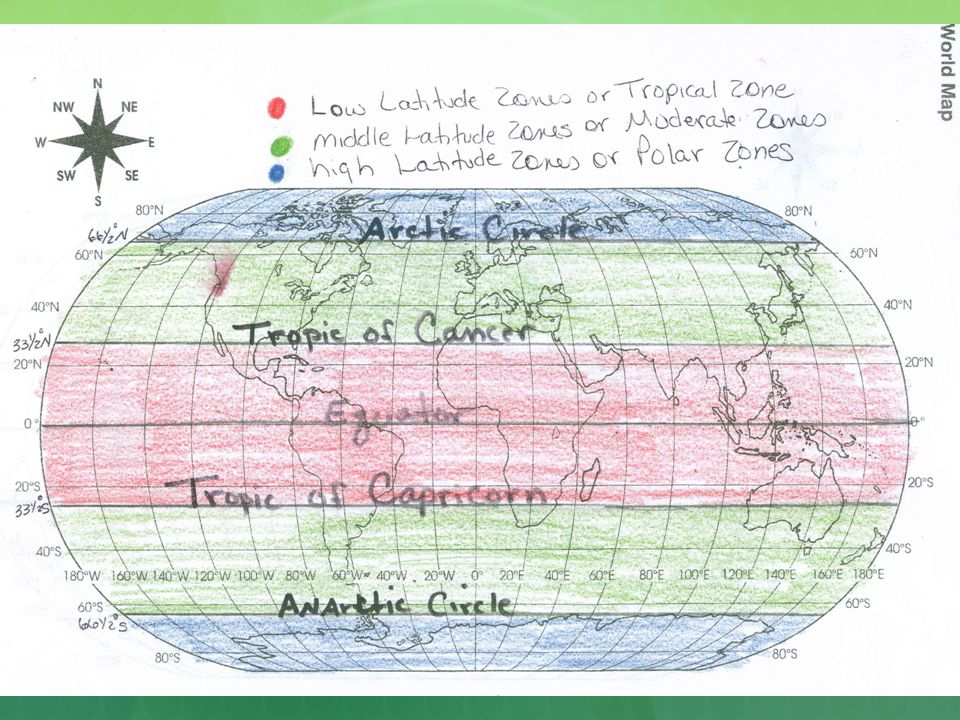 World Map
N
NW NE
W E
SW SE
S
Low Latitude Zones or Tropical Zone
middle Latitude Zones or Moderate Zones
high Latitude Zones or Polar Zones
80°N 80°N
66½°N Arctic Circle
60°N 60°N
40°N 40°N
33½°N Tropic of Cancer
20°N 20°N
Equator
0° 0°
20°S Tropic of Capricorn 20°S
33½°S
40°S 40°S
180°W 160°W 140°W 120°W 100°W 80°W 60°W 40°W 20°W 0° 20°E 40°E 60°E 80°E 100°E 120°E 140°E 160°E 180°E
60°S ANArctic Circle 60°S
66½°S
80°S 80°S